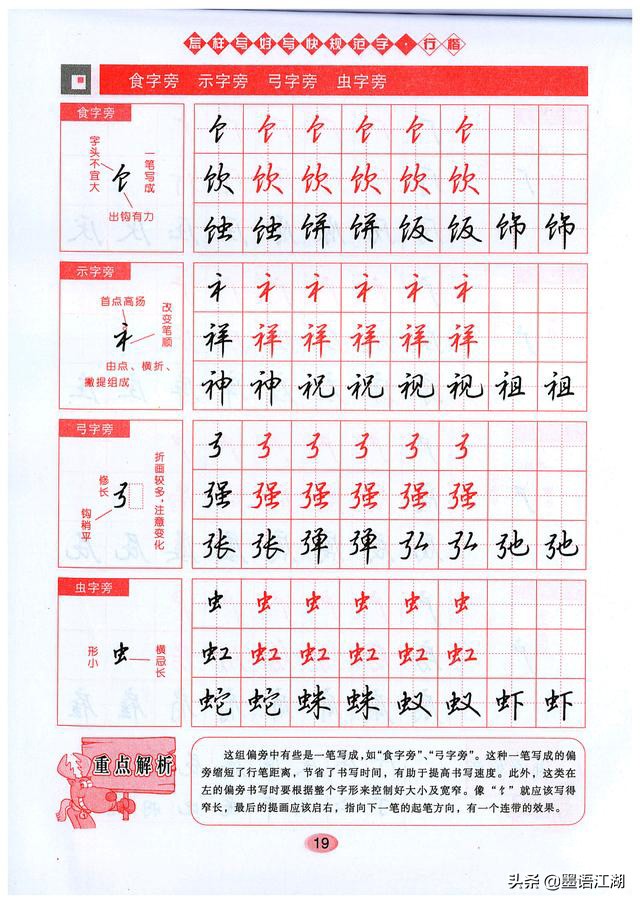 怎样写好写快规范字·行楷
食字旁 示字旁 弓字旁 虫字旁
食字旁
字头不宜大
一笔写成
饣
出钩有力
饣 饣 饣 饣 饣 饣
饮 饮 饮 饮 饮 饮
蚀 蚀 饼 饼 饭 饭 饰 饰
示字旁
首点高扬
改变笔顺
礻
由点、横折、
撇提组成
礻 礻 礻 礻 礻 礻
祥 祥 祥 祥 祥 祥
神 神 祝 祝 视 视 祖 祖
弓字旁
折画较多,注意变化
修长
弓
钩稍平
弓 弓 弓 弓 弓 弓
强 强 强 强 强 强
张 张 弹 弹 弘 弘 弛 弛
虫字旁
形小
虫
横忌长
虫 虫 虫 虫 虫 虫
虹 虹 虹 虹 虹 虹
蛇 蛇 蛛 蛛 蚁 蚁 虾 虾
重点解析
这组偏旁中有些是一笔写成,如“食字旁”、“弓字旁”。这种一笔写成的偏
旁缩短了行笔距离,节省了书写时间,有助于提高书写速度。此外,这类在
左的偏旁书写时要根据整个字形来控制好大小及宽窄。像“饣”就应该写得
窄长,最后的提画应该启右,指向下一笔的起笔方向,有一个连带的效果。
19
头条 @墨语江湖